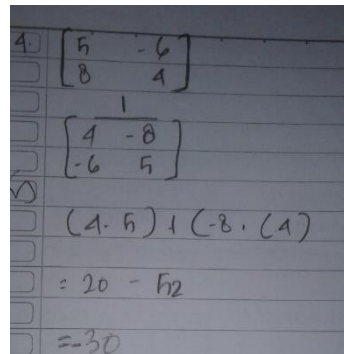 4. [5 -6
8 4]
1
[4 -8
-6 5]
(4. 5) + (-8. (4)
= 20 - 52
= -30